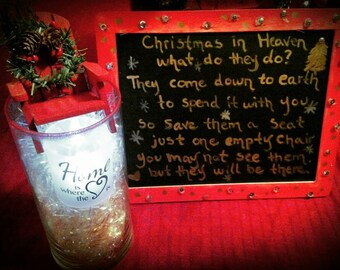 Christmas in Heaven
what do they do?
They come down to earth
to spend it with you
so save them a seat
just one empty chair
you may not see them
but they will be there.
Home
is
where
the